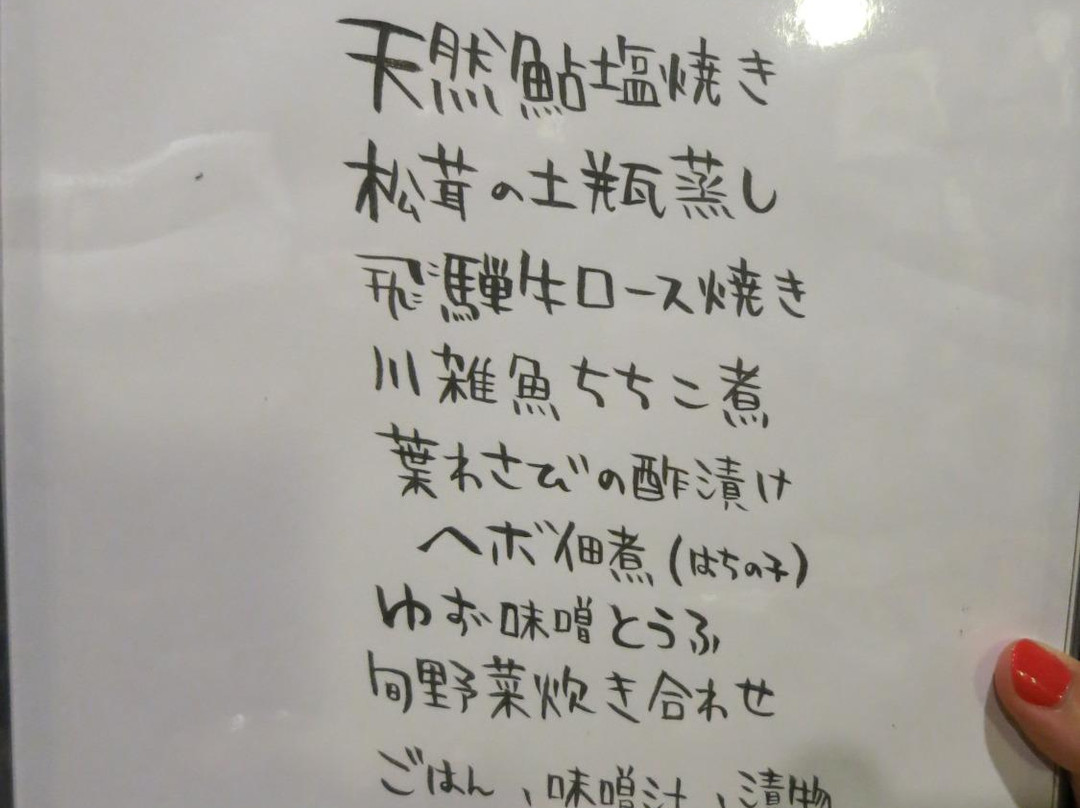 天然鮎塩焼き
松茸の土瓶蒸し
飛騨牛ロース焼き
川雑魚ちちこ煮
葉わさびの酢漬け
ヘボ佃煮(はちの子)
ゆず味噌とうふ
旬野菜炊き合わせ
ごはん、味噌汁、漬物